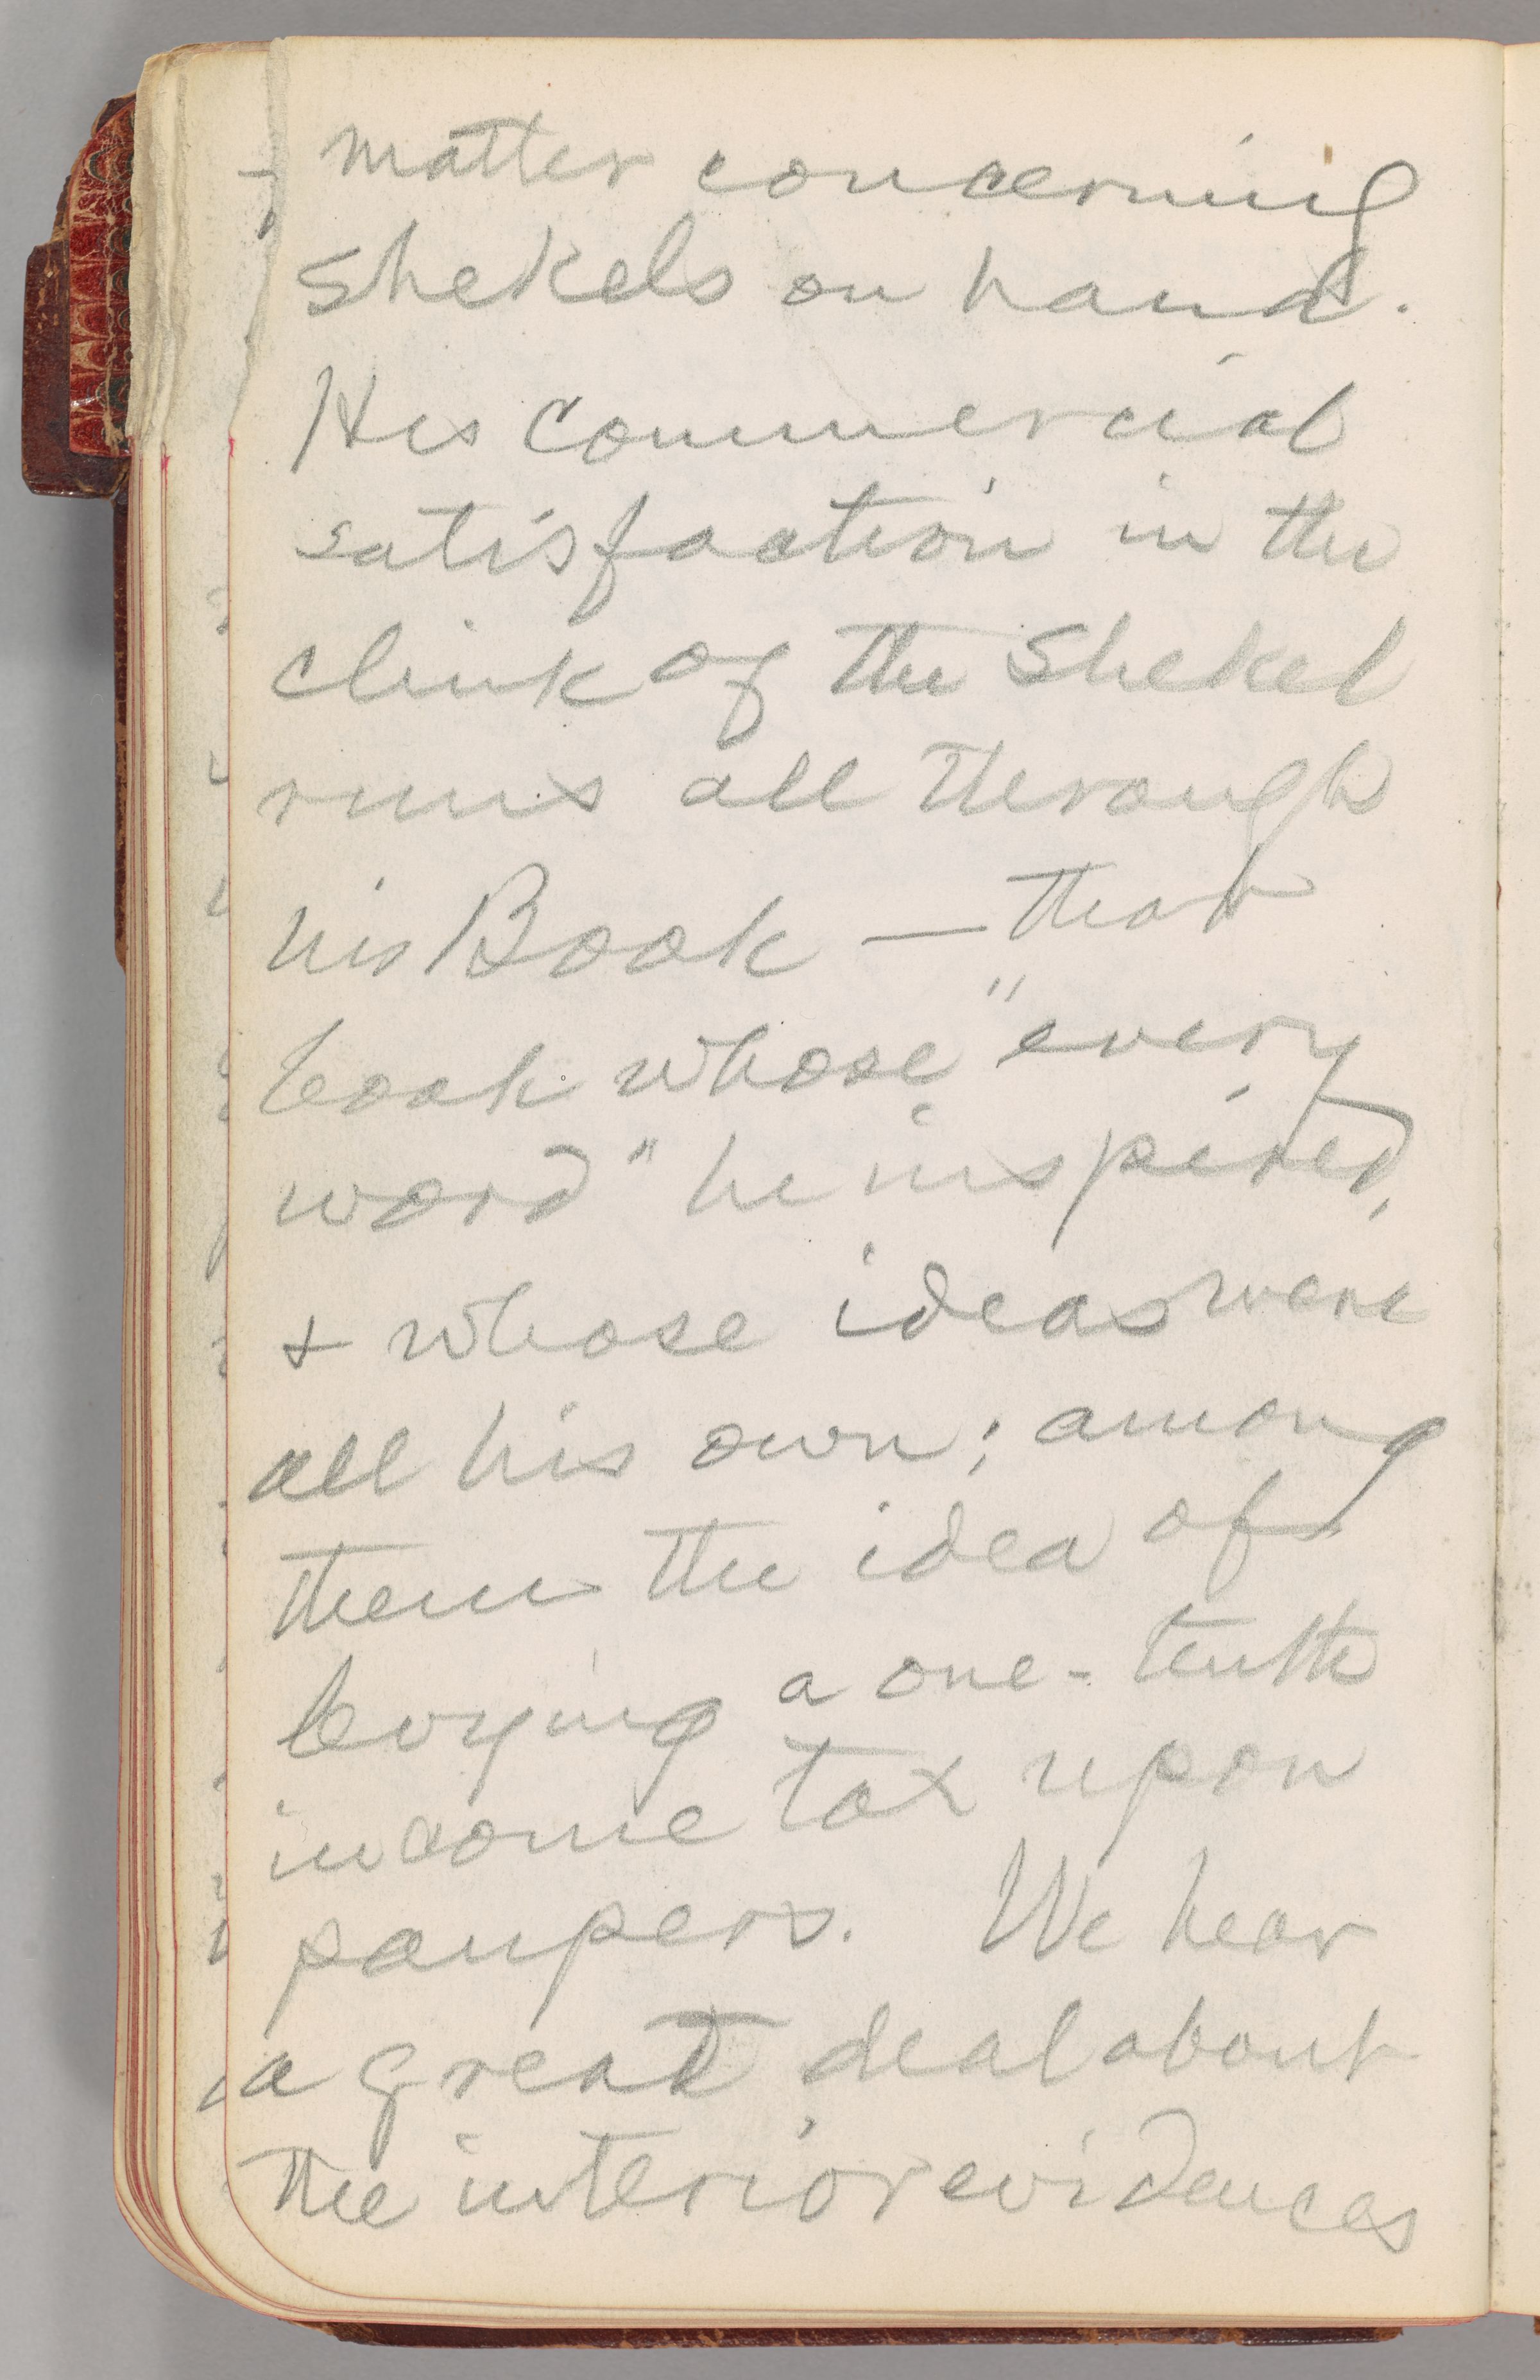 matter concerning
shekels on hand.
His commercial
satisfaction in the
clink of the shekel
runs all through
his Book — that
book whose "every
word" he inspired,
+ whose ideas were
all his own; among
them the idea of
levying a one-tenth
income tax upon
paupers. We hear
a great deal about
the interior evidences